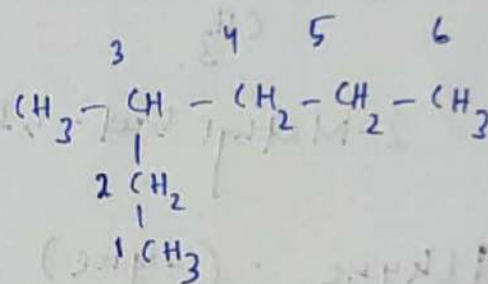 3 4 5 6
CH₃ – CH – CH₂ – CH₂ – CH₃
2 CH₂
1 CH₃